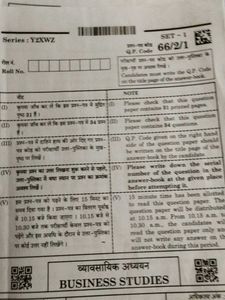 SET – 1
Series : Y2XWZ
प्रश्न-पत्र कोड
Q.P. Code 66/2/1
रोल नं.
Roll No.
परीक्षार्थी प्रश्न-पत्र कोड को उत्तर-पुस्तिका के
मुख-पृष्ठ पर अवश्य लिखें ।
Candidates must write the Q.P. Code
on the title page of the answer-book.
नोट
NOTE
(I) कृपया जाँच कर लें कि इस प्रश्न-पत्र में मुद्रित
पृष्ठ 31 हैं ।
(I) Please check that this question
paper contains 31 printed pages.
(II) कृपया जाँच कर लें कि इस प्रश्न-पत्र में 34 प्रश्न
हैं ।
(II) Please check that this question
paper contains 34 questions.
(III) प्रश्न-पत्र में दाहिने हाथ की ओर दिए गए प्रश्न-
पत्र कोड को परीक्षार्थी उत्तर-पुस्तिका के मुख-
पृष्ठ पर लिखें ।
(III) Q.P. Code given on the right hand
side of the question paper should
be written on the title page of the
answer-book by the candidate.
(IV) कृपया प्रश्न का उत्तर लिखना शुरू करने से पहले,
उत्तर-पुस्तिका में यथा स्थान पर प्रश्न का क्रमांक
अवश्य लिखें ।
(IV) Please write down the serial
number of the question in the
answer-book at the given place
before attempting it.
(V) इस प्रश्न-पत्र को पढ़ने के लिए 15 मिनट का
समय दिया गया है । प्रश्न-पत्र का वितरण पूर्वाह्न
में 10.15 बजे किया जाएगा । 10.15 बजे से
10.30 बजे तक परीक्षार्थी केवल प्रश्न-पत्र को
पढ़ेंगे और इस अवधि के दौरान वे उत्तर-पुस्तिका
पर कोई उत्तर नहीं लिखेंगे ।
(V) 15 minute time has been allotted
to read this question paper. The
question paper will be distributed
at 10.15 a.m. From 10.15 a.m. to
10.30 a.m., the candidates will
read the question paper only and
will not write any answer on the
answer-book during this period.
व्यावसायिक अध्ययन
BUSINESS STUDIES